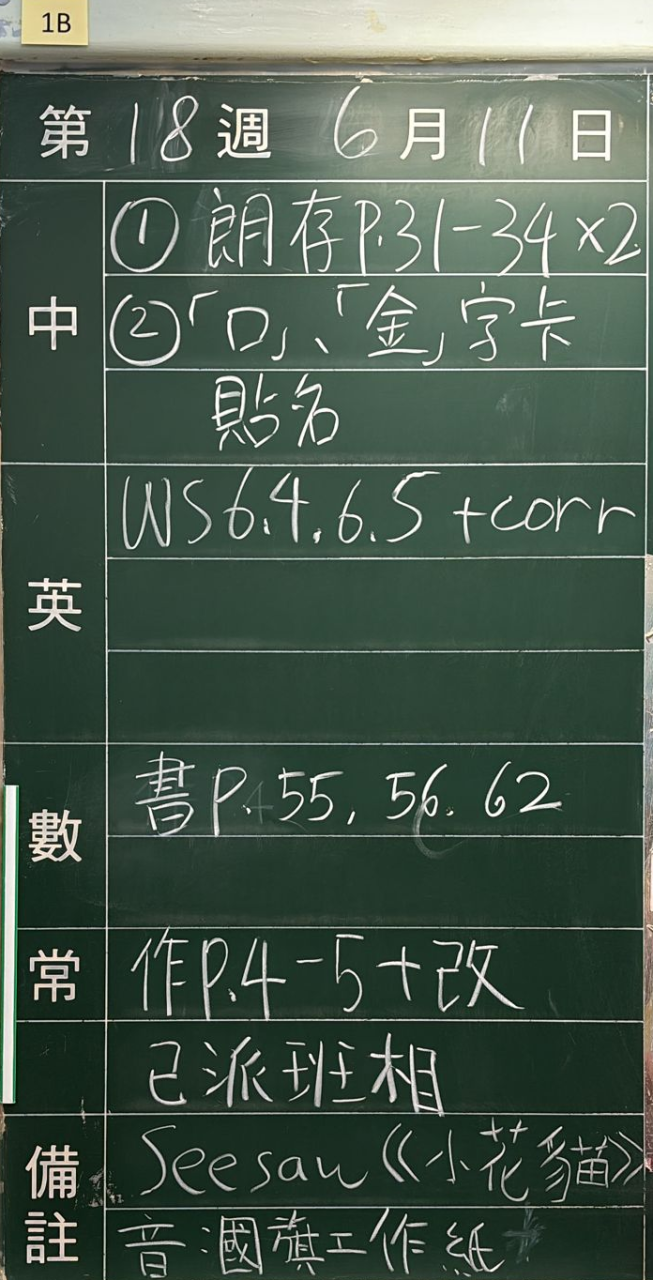 1B
第18週 6月11日
中
① 朗存P.31-34 ×2
②「口」、「金」字卡
貼名
英
WS 6.4, 6.5 +corr
數
書P. 55, 56. 62
常
作P.4-5+改
已派班相
備註
Seesaw《小花貓》
音:國旗工作紙